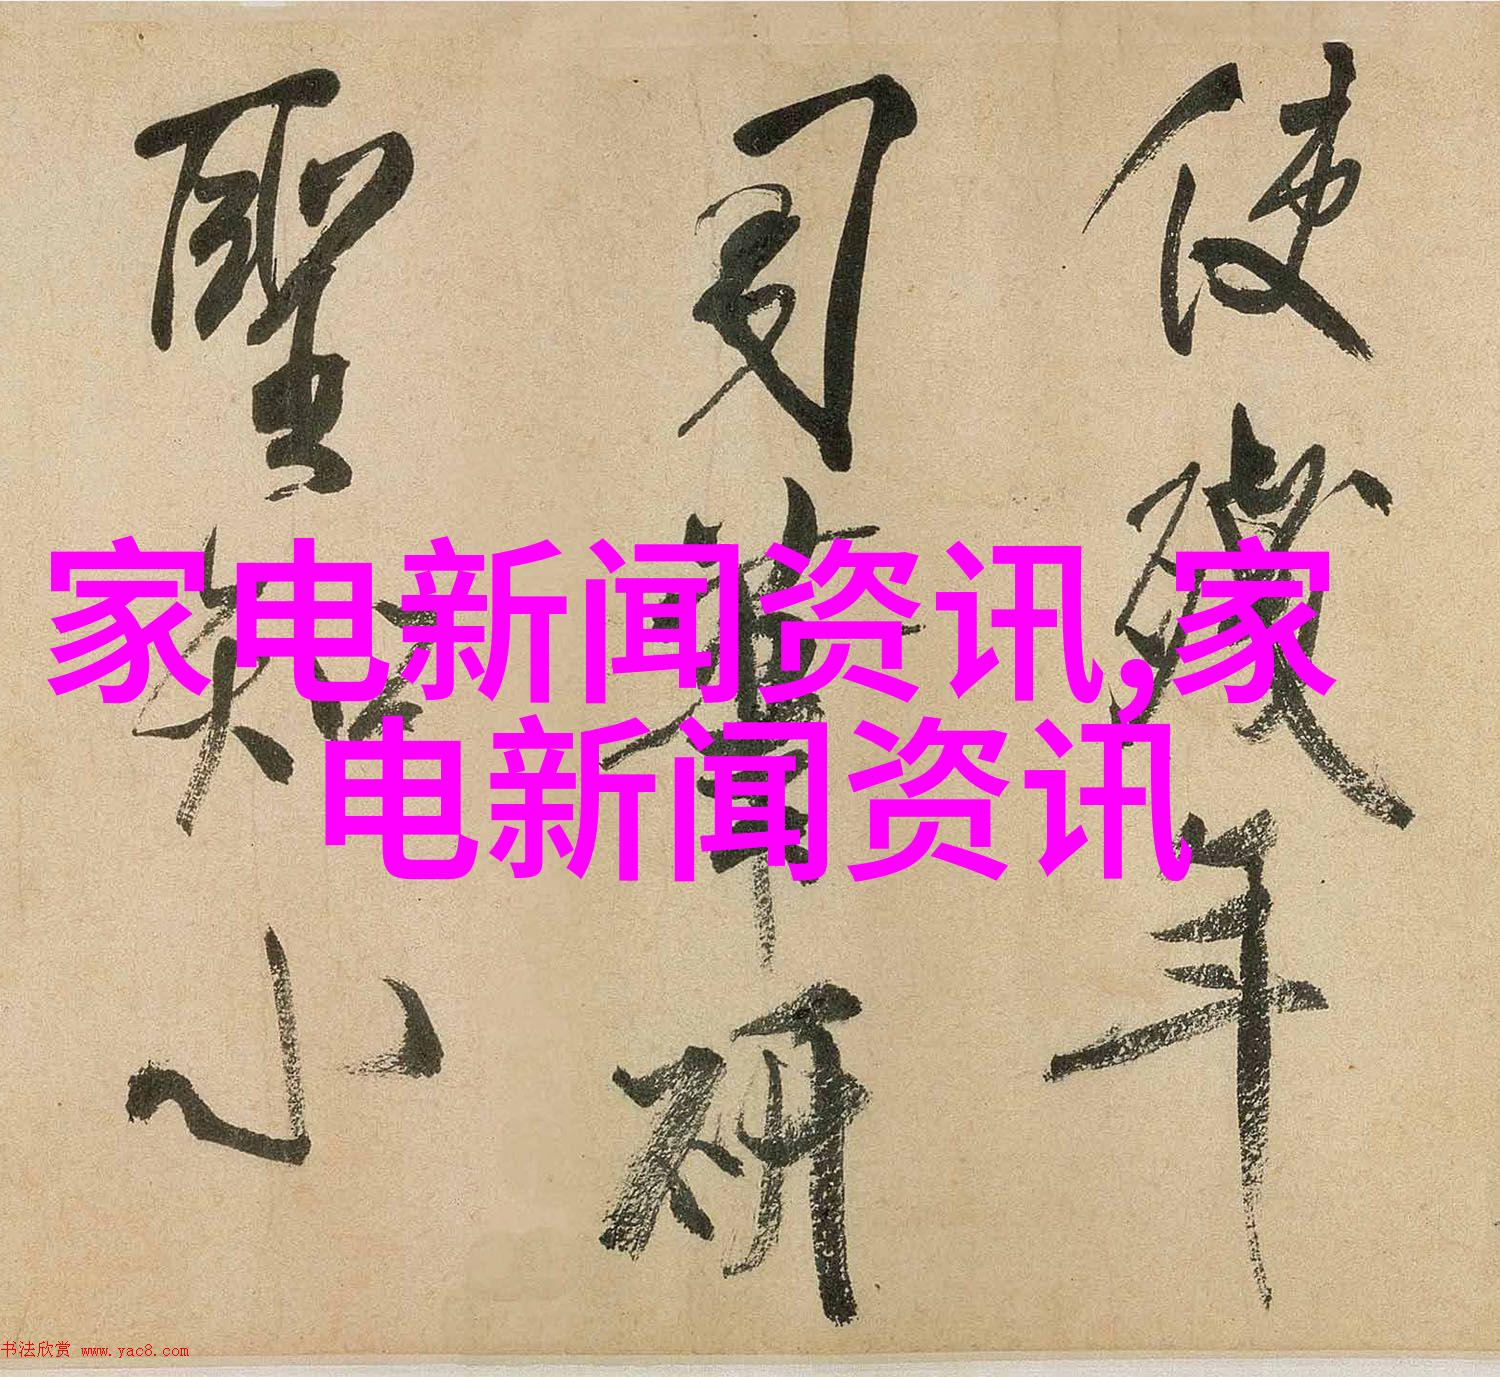 使殘年
司萃研
聖知小
家电新闻资讯,家
电新闻资讯
书法欣赏 www.yac8.com